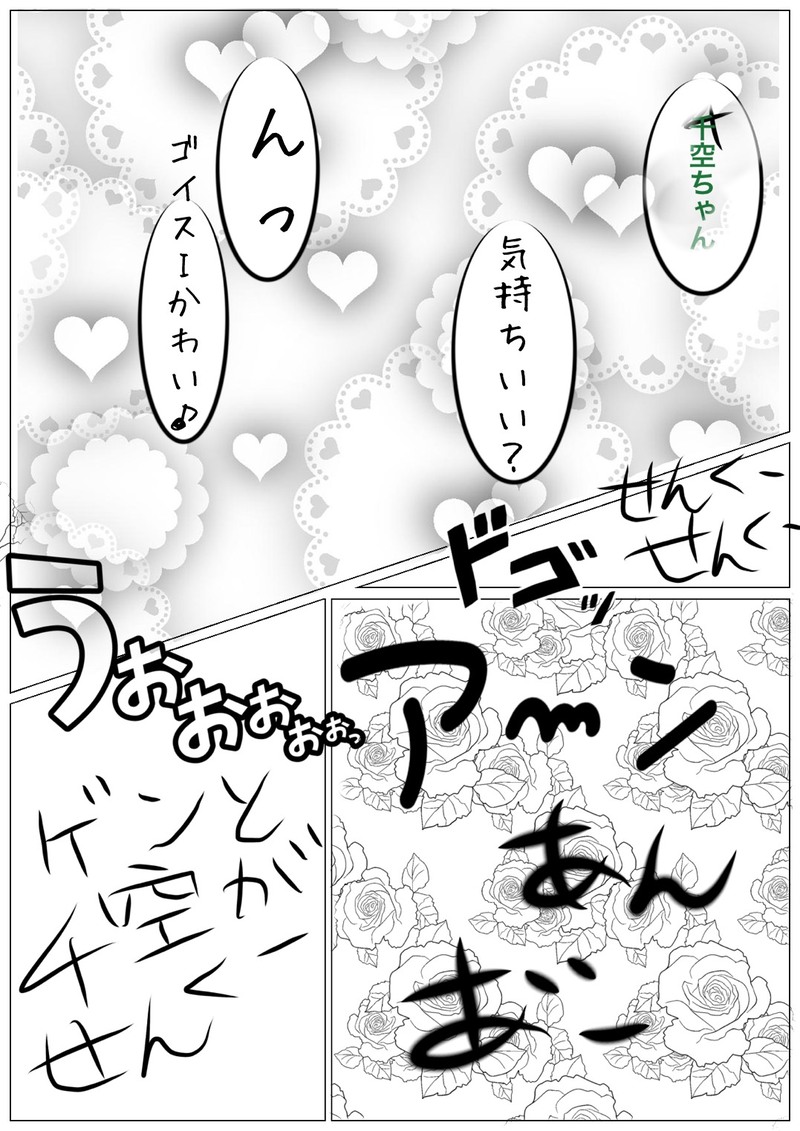 千空ちゃん
気持ちいい?
んっ
ゴイスーかわい♪
せんくー
せんくー
ドゴゴッ
アーン
あん
あ゛ー
うぉおおおおっ
ゲンと
千空が
せんくー